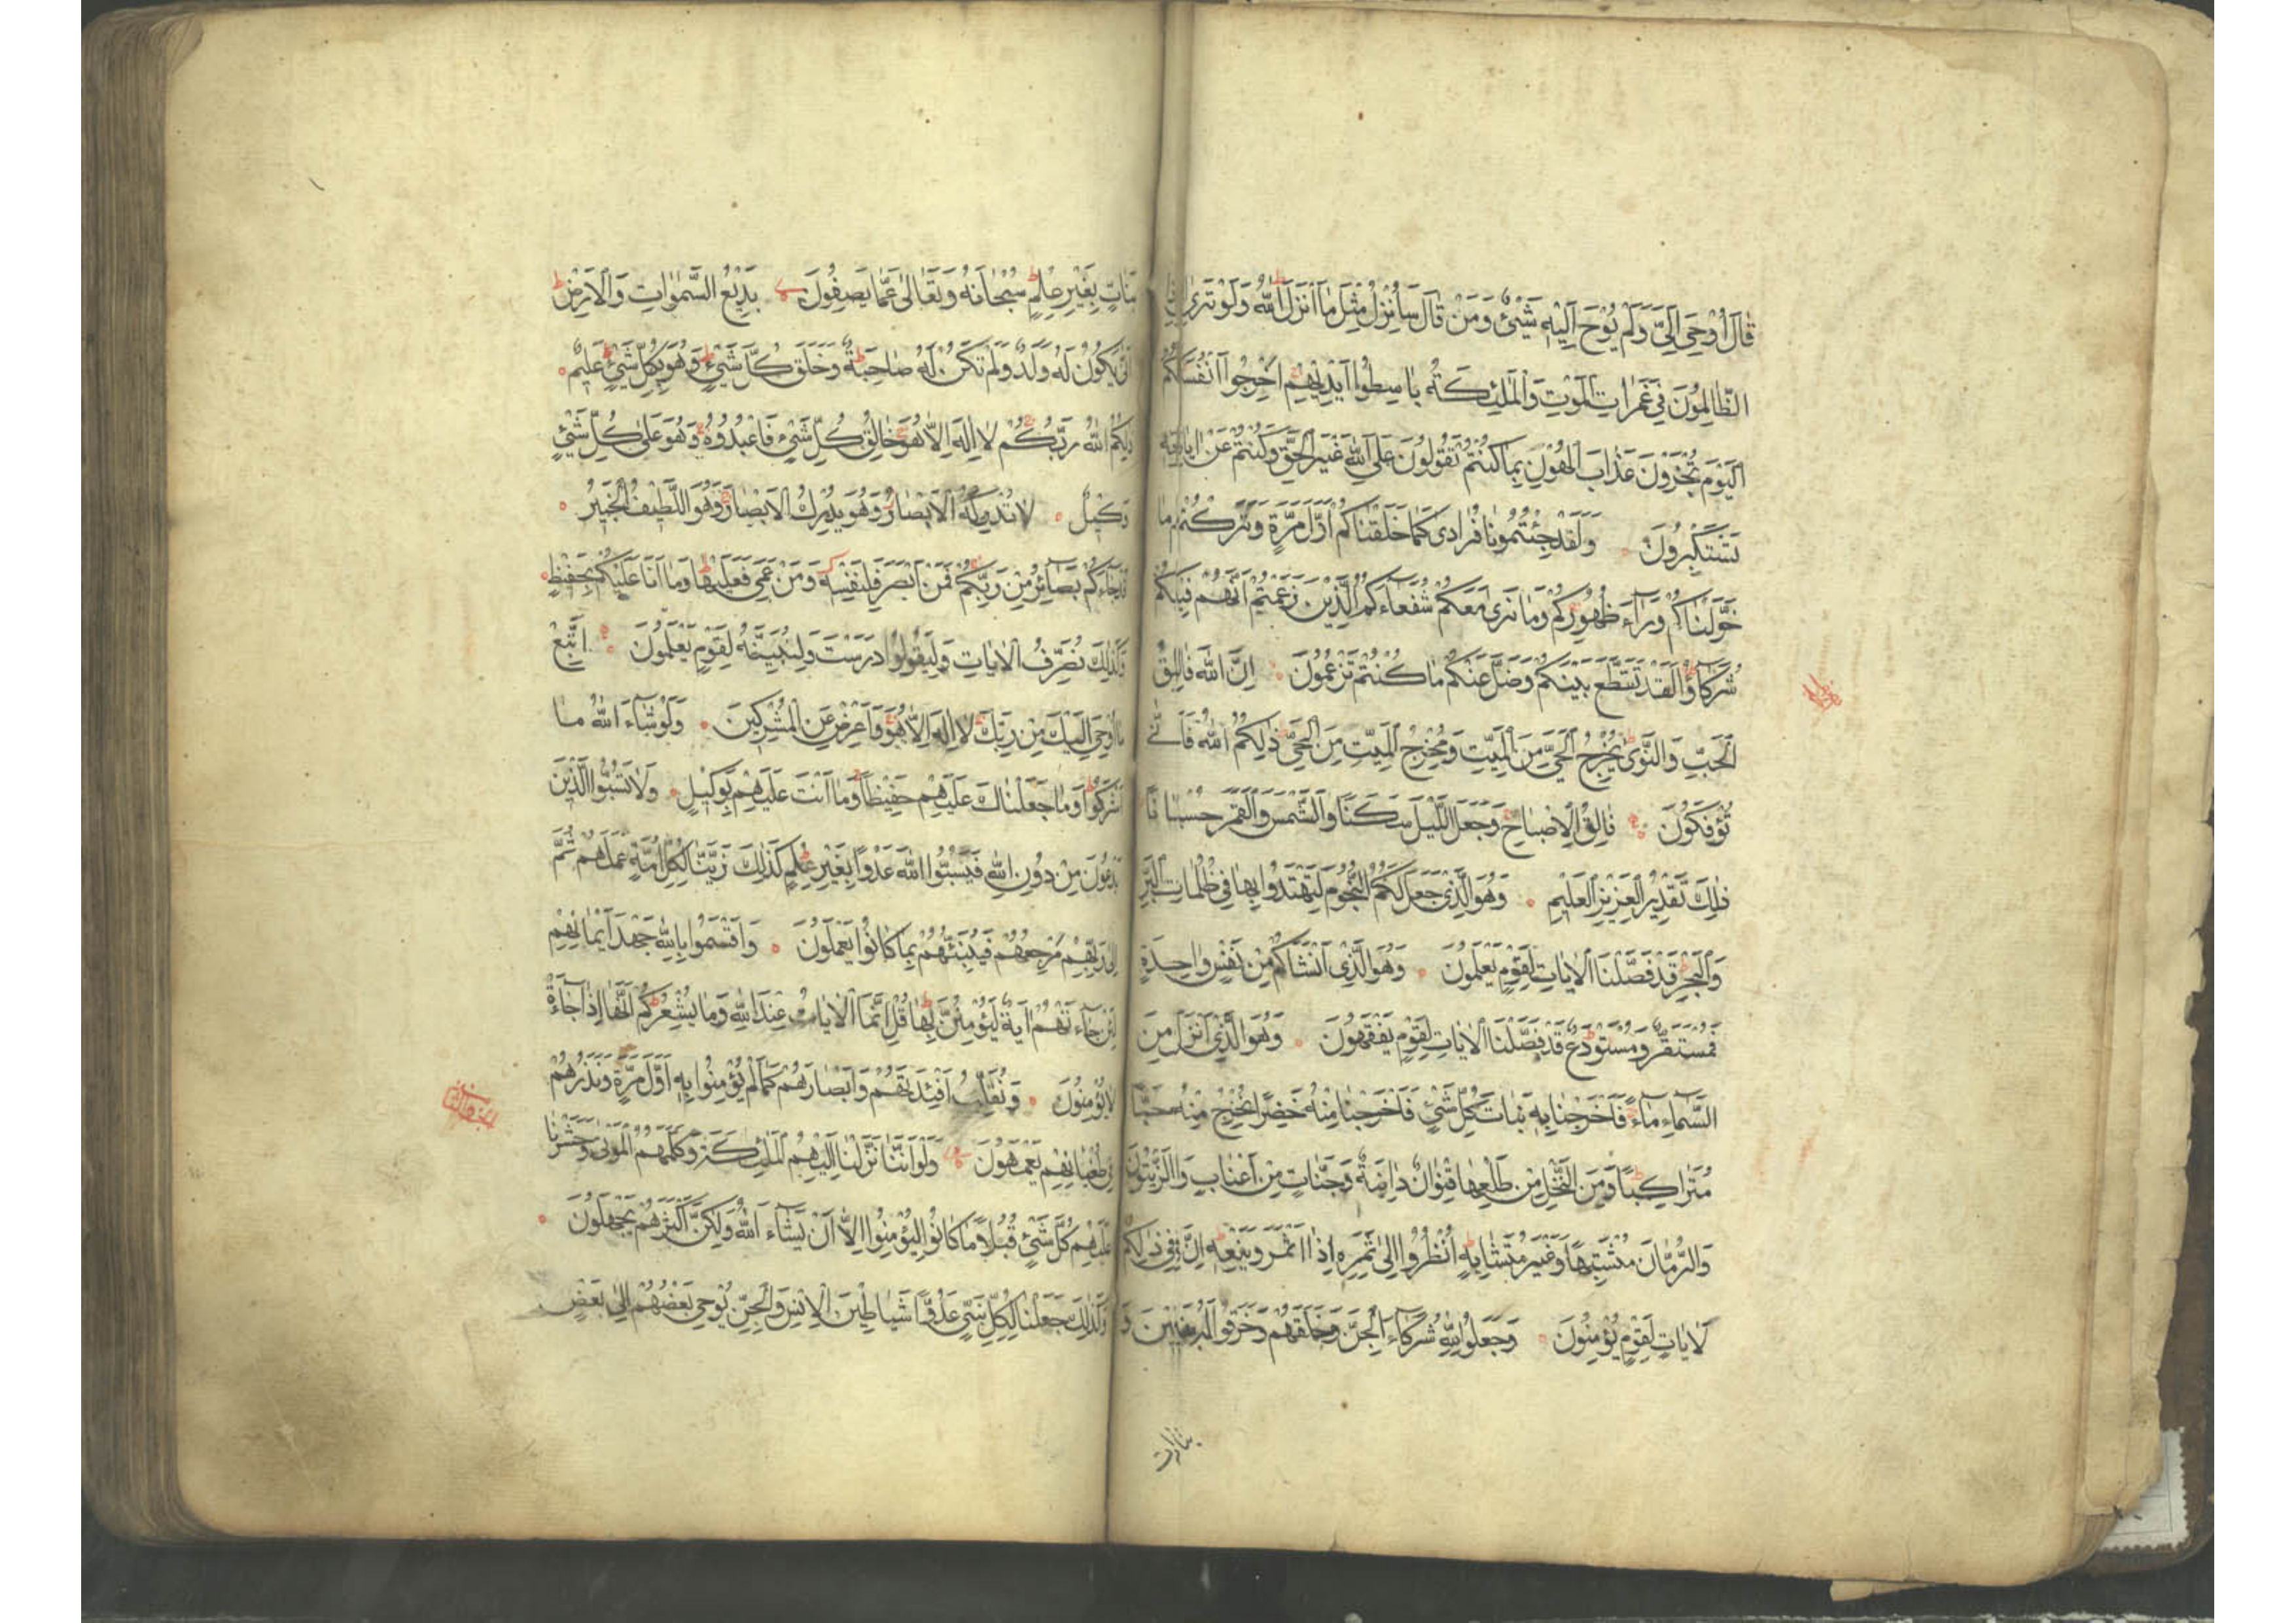 قَالَ اُوْحِيَ اِلَيَّ وَلَمْ يُوْحَ اِلَيْهِ شَيْءٌ وَمَنْ قَالَ سَاُنْزِلُ مِثْلَ مَا اَنْزَلَ اللّٰهُ وَلَوْ تَرٰى اِذِ
الظَّالِمُونَ فِي غَمَرَاتِ الْمَوْتِ وَالْمَلٰئِكَةُ بَاسِطُوا اَيْدِيْهِمْ اَخْرِجُوا اَنْفُسَكُمْ
اَلْيَوْمَ تُجْزَوْنَ عَذَابَ الْهُوْنِ بِمَا كُنْتُمْ تَقُولُونَ عَلَى اللّٰهِ غَيْرَ الْحَقِّ وَكُنْتُمْ عَنْ اٰيَاتِهِ
تَسْتَكْبِرُونَ وَلَقَدْ جِئْتُمُونَا فُرَادٰى كَمَا خَلَقْنَاكُمْ اَوَّلَ مَرَّةٍ وَتَرَكْتُمْ مَا
خَوَّلْنَاكُمْ وَرَآءَ ظُهُورِكُمْ وَمَا نَرٰى مَعَكُمْ شُفَعَآءَكُمُ الَّذِيْنَ زَعَمْتُمْ اَنَّهُمْ فِيْكُمْ
شُرَكَآؤُا لَقَدْ تَقَطَّعَ بَيْنَكُمْ وَضَلَّ عَنْكُمْ مَا كُنْتُمْ تَزْعُمُونَ اِنَّ اللّٰهَ فَالِقُ
الْحَبِّ وَالنَّوٰى يُخْرِجُ الْحَيَّ مِنَ الْمَيِّتِ وَمُخْرِجُ الْمَيِّتِ مِنَ الْحَيِّ ذٰلِكُمُ اللّٰهُ فَاَنّٰى
تُؤْفَكُونَ فَالِقُ الْاِصْبَاحِ وَجَعَلَ اللَّيْلَ سَكَنًا وَالشَّمْسَ وَالْقَمَرَ حُسْبَانًا
ذٰلِكَ تَقْدِيْرُ الْعَزِيْزِ الْعَلِيْمِ وَهُوَ الَّذِيْ جَعَلَ لَكُمُ النُّجُومَ لِتَهْتَدُوا بِهَا فِي ظُلُمَاتِ الْبَرِّ
وَالْبَحْرِ قَدْ فَصَّلْنَا الْاٰيَاتِ لِقَوْمٍ يَعْلَمُونَ وَهُوَ الَّذِيْ اَنْشَاَكُمْ مِنْ نَفْسٍ وَاحِدَةٍ
فَمُسْتَقَرٌّ وَمُسْتَوْدَعٌ قَدْ فَصَّلْنَا الْاٰيَاتِ لِقَوْمٍ يَفْقَهُونَ وَهُوَ الَّذِيْ اَنْزَلَ مِنَ
السَّمَآءِ مَآءً فَاَخْرَجْنَا بِهِ نَبَاتَ كُلِّ شَيْءٍ فَاَخْرَجْنَا مِنْهُ خَضِرًا نُخْرِجُ مِنْهُ حَبًّا
مُتَرَاكِبًا وَمِنَ النَّخْلِ مِنْ طَلْعِهَا قِنْوَانٌ دَانِيَةٌ وَجَنَّاتٍ مِنْ اَعْنَابٍ وَالزَّيْتُونَ
وَالرُّمَّانَ مُشْتَبِهًا وَغَيْرَ مُتَشَابِهٍ اُنْظُرُوا اِلٰى ثَمَرِهِ اِذَا اَثْمَرَ وَيَنْعِهِ اِنَّ فِي ذٰلِكُمْ
لَاٰيَاتٍ لِقَوْمٍ يُؤْمِنُونَ وَجَعَلُوا لِلّٰهِ شُرَكَآءَ الْجِنَّ وَخَلَقَهُمْ وَخَرَقُوا لَهُ بَنِيْنَ وَ
بَنَاتٍ بِغَيْرِ عِلْمٍ سُبْحَانَهُ وَتَعَالٰى عَمَّا يَصِفُونَ بَدِيْعُ السَّمٰوَاتِ وَالْاَرْضِ
اَنّٰى يَكُونُ لَهُ وَلَدٌ وَلَمْ تَكُنْ لَهُ صَاحِبَةٌ وَخَلَقَ كُلَّ شَيْءٍ وَهُوَ بِكُلِّ شَيْءٍ عَلِيْمٌ
ذٰلِكُمُ اللّٰهُ رَبُّكُمْ لَا اِلٰهَ اِلَّا هُوَ خَالِقُ كُلِّ شَيْءٍ فَاعْبُدُوهُ وَهُوَ عَلٰى كُلِّ شَيْءٍ
وَكِيْلٌ لَا تُدْرِكُهُ الْاَبْصَارُ وَهُوَ يُدْرِكُ الْاَبْصَارَ وَهُوَ اللَّطِيْفُ الْخَبِيْرُ
قَدْ جَآءَكُمْ بَصَآئِرُ مِنْ رَبِّكُمْ فَمَنْ اَبْصَرَ فَلِنَفْسِهِ وَمَنْ عَمِيَ فَعَلَيْهَا وَمَا اَنَا عَلَيْكُمْ بِحَفِيْظٍ
وَكَذٰلِكَ نُصَرِّفُ الْاٰيَاتِ وَلِيَقُولُوا دَرَسْتَ وَلِنُبَيِّنَهُ لِقَوْمٍ يَعْلَمُونَ اِتَّبِعْ
مَا اُوْحِيَ اِلَيْكَ مِنْ رَبِّكَ لَا اِلٰهَ اِلَّا هُوَ وَاَعْرِضْ عَنِ الْمُشْرِكِيْنَ وَلَوْ شَآءَ اللّٰهُ مَا
اَشْرَكُوا وَمَا جَعَلْنَاكَ عَلَيْهِمْ حَفِيْظًا وَمَا اَنْتَ عَلَيْهِمْ بِوَكِيْلٍ وَلَا تَسُبُّوا الَّذِيْنَ
يَدْعُونَ مِنْ دُوْنِ اللّٰهِ فَيَسُبُّوا اللّٰهَ عَدْوًا بِغَيْرِ عِلْمٍ كَذٰلِكَ زَيَّنَّا لِكُلِّ اُمَّةٍ عَمَلَهُمْ ثُمَّ
اِلٰى رَبِّهِمْ مَرْجِعُهُمْ فَيُنَبِّئُهُمْ بِمَا كَانُوا يَعْمَلُونَ وَاَقْسَمُوا بِاللّٰهِ جَهْدَ اَيْمَانِهِمْ
لَئِنْ جَآءَتْهُمْ اٰيَةٌ لَيُؤْمِنُنَّ بِهَا قُلْ اِنَّمَا الْاٰيَاتُ عِنْدَ اللّٰهِ وَمَا يُشْعِرُكُمْ اَنَّهَا اِذَا جَآءَتْ
لَا يُؤْمِنُونَ وَنُقَلِّبُ اَفْئِدَتَهُمْ وَاَبْصَارَهُمْ كَمَا لَمْ يُؤْمِنُوا بِهِ اَوَّلَ مَرَّةٍ وَنَذَرُهُمْ
فِي طُغْيَانِهِمْ يَعْمَهُونَ وَلَوْ اَنَّنَا نَزَّلْنَا اِلَيْهِمُ الْمَلٰئِكَةَ وَكَلَّمَهُمُ الْمَوْتٰى وَحَشَرْنَا
عَلَيْهِمْ كُلَّ شَيْءٍ قُبُلًا مَا كَانُوا لِيُؤْمِنُوا اِلَّا اَنْ يَشَآءَ اللّٰهُ وَلٰكِنَّ اَكْثَرَهُمْ يَجْهَلُونَ
وَكَذٰلِكَ جَعَلْنَا لِكُلِّ نَبِيٍّ عَدُوًّا شَيَاطِيْنَ الْاِنْسِ وَالْجِنِّ يُوْحِي بَعْضُهُمْ اِلٰى بَعْضٍ